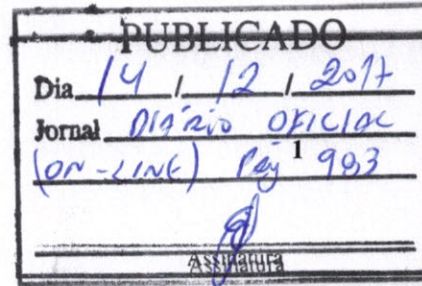 PUBLICADO
Dia 14 / 12 / 2017
Jornal DIÁRIO OFICIAL
(ON-LINE) Pág 1 983
Assinatura